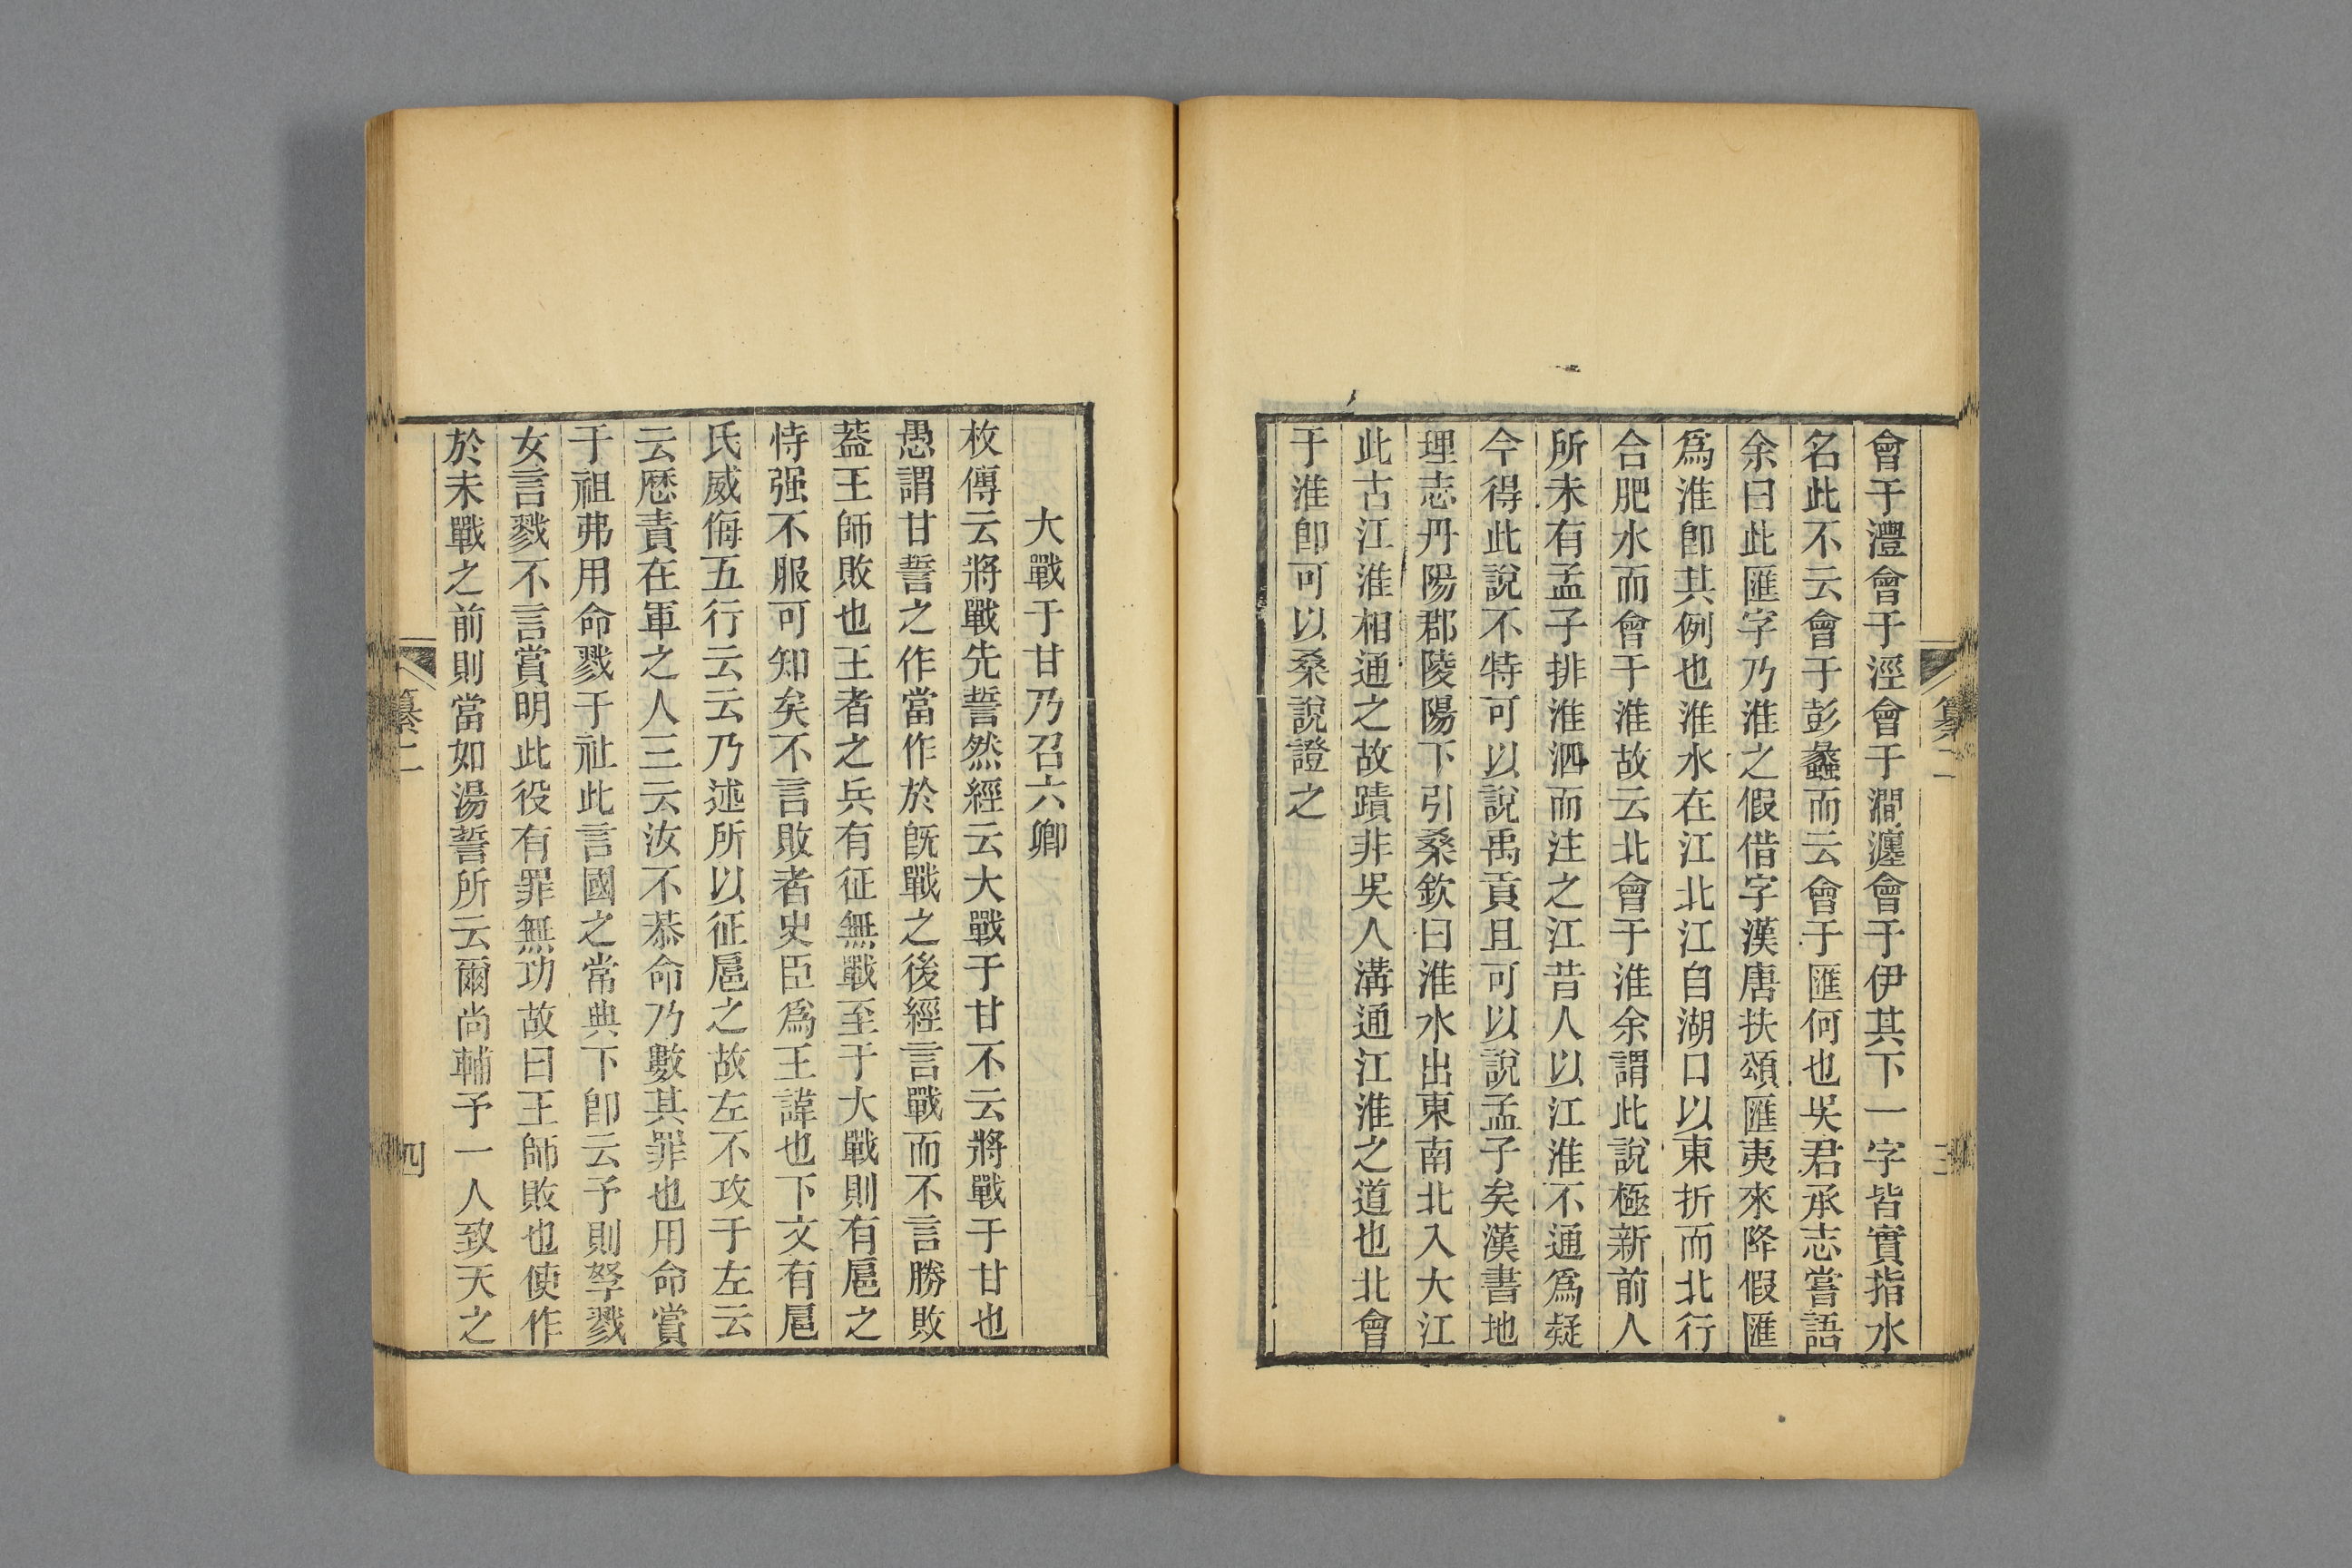 會于灃會于涇會于澗瀍會于伊其下一字皆實指水
名此不云會于彭蠡而云會于匯何也吳君承志嘗語
余曰此匯字乃淮之假借字漢唐扶頌匯夷來降假匯
爲淮卽其例也淮水在江北江自湖口以東折而北行
合肥水而會于淮故云北會于淮余謂此說極新前人
所未有孟子排淮泗而注之江昔人以江淮不通爲疑
今得此說不特可以說禹貢且可以說孟子矣漢書地
理志丹陽郡陵陽下引桑欽曰淮水出東南北入大江
此古江淮相通之故蹟非吳人溝通江淮之道也北會
于淮卽可以桑說證之
纂二
三
大戰于甘乃召六卿
枚傳云將戰先誓然經云大戰于甘不云將戰于甘也
愚謂甘誓之作當作於旣戰之後經言戰而不言勝敗
蓋王師敗也王者之兵有征無戰至于大戰則有扈之
恃强不服可知矣不言敗者史臣爲王諱也下文有扈
氏威侮五行云云乃述所以征扈之故左不攻于左云
云歷責在軍之人三云汝不恭命乃數其罪也用命賞
于祖弗用命戮于社此言國之常典下卽云予則孥戮
女言戮不言賞明此役有罪無功故曰王師敗也使作
於未戰之前則當如湯誓所云爾尚輔予一人致天之
纂二
四